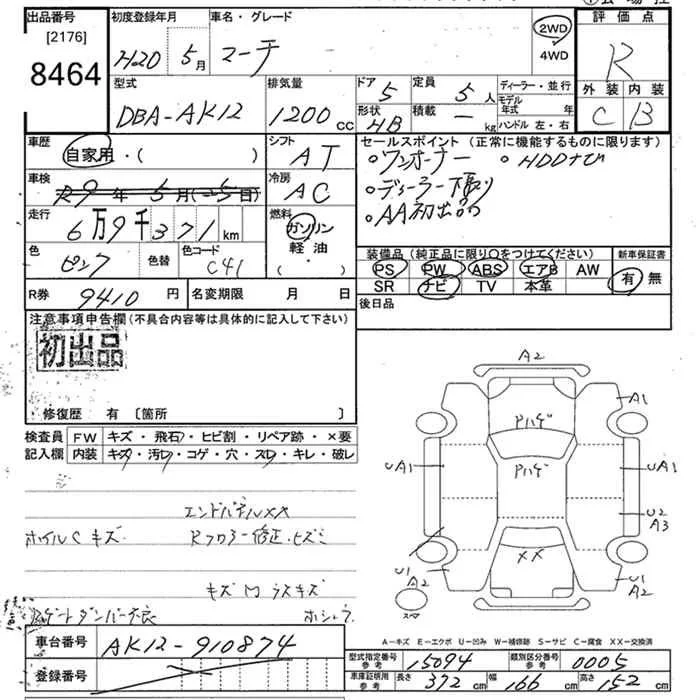 出品番号 初度登録年月 車名・グレード 評価点
[2176]
8464
H20 5月 マーチ 2WD 4WD R
型式 排気量 ドア 定員 ディーラー・並行 外装 内装
DBA-AK12 1200cc 5 5人 モデル年式 年 C B
形状 積載 ハンドル 左・右
HB — kg
車歴 シフト セールスポイント (正常に機能するものに限ります)
自家用・( ) AT
。ワンオーナー 。HDDナビ
車検 冷房
R9年5月(-5日) AC
。ディーラー下取り
走行 燃料
6万9千371km ガソリン 軽油 ( ・ )
。AA初出品
色 色替 色コード 装備品(純正品に限り〇をつけてください) 新車保証書
ピンク C41
PS PW ABS エアB AW 有 無
SR ナビ TV 本革
R券 9410円 名変期限 月 日 後日品
注意事項申告欄(不具合内容等は具体的に記入して下さい)
初出品
・修復歴 有 〔箇所 〕
検査員 FW キズ・飛石・ヒビ割・リペア跡・×要
記入欄 内装 キズ・汚レ・コゲ・穴・スレ・キレ・破レ
エンドパネルXX
ホイルCキズ Rフロアー修正・ヒズミ
キズM ラスキズ
Rゲートダンパー不良
A2
A1
Pハゲ
UA1 Pハゲ UA1
U2
A3
XX
U1 A2 U1 A2
スペア
A-キズ E-エクボ U-凹み W-補修跡 S-サビ C-腐食 XX-交換済
車台番号 AK12-910874
登録番号
型式指定番号 参考 15094 類別区分番号 参考 0005
車庫証明用 参考 長さ 372cm 幅 166cm 高さ 152cm